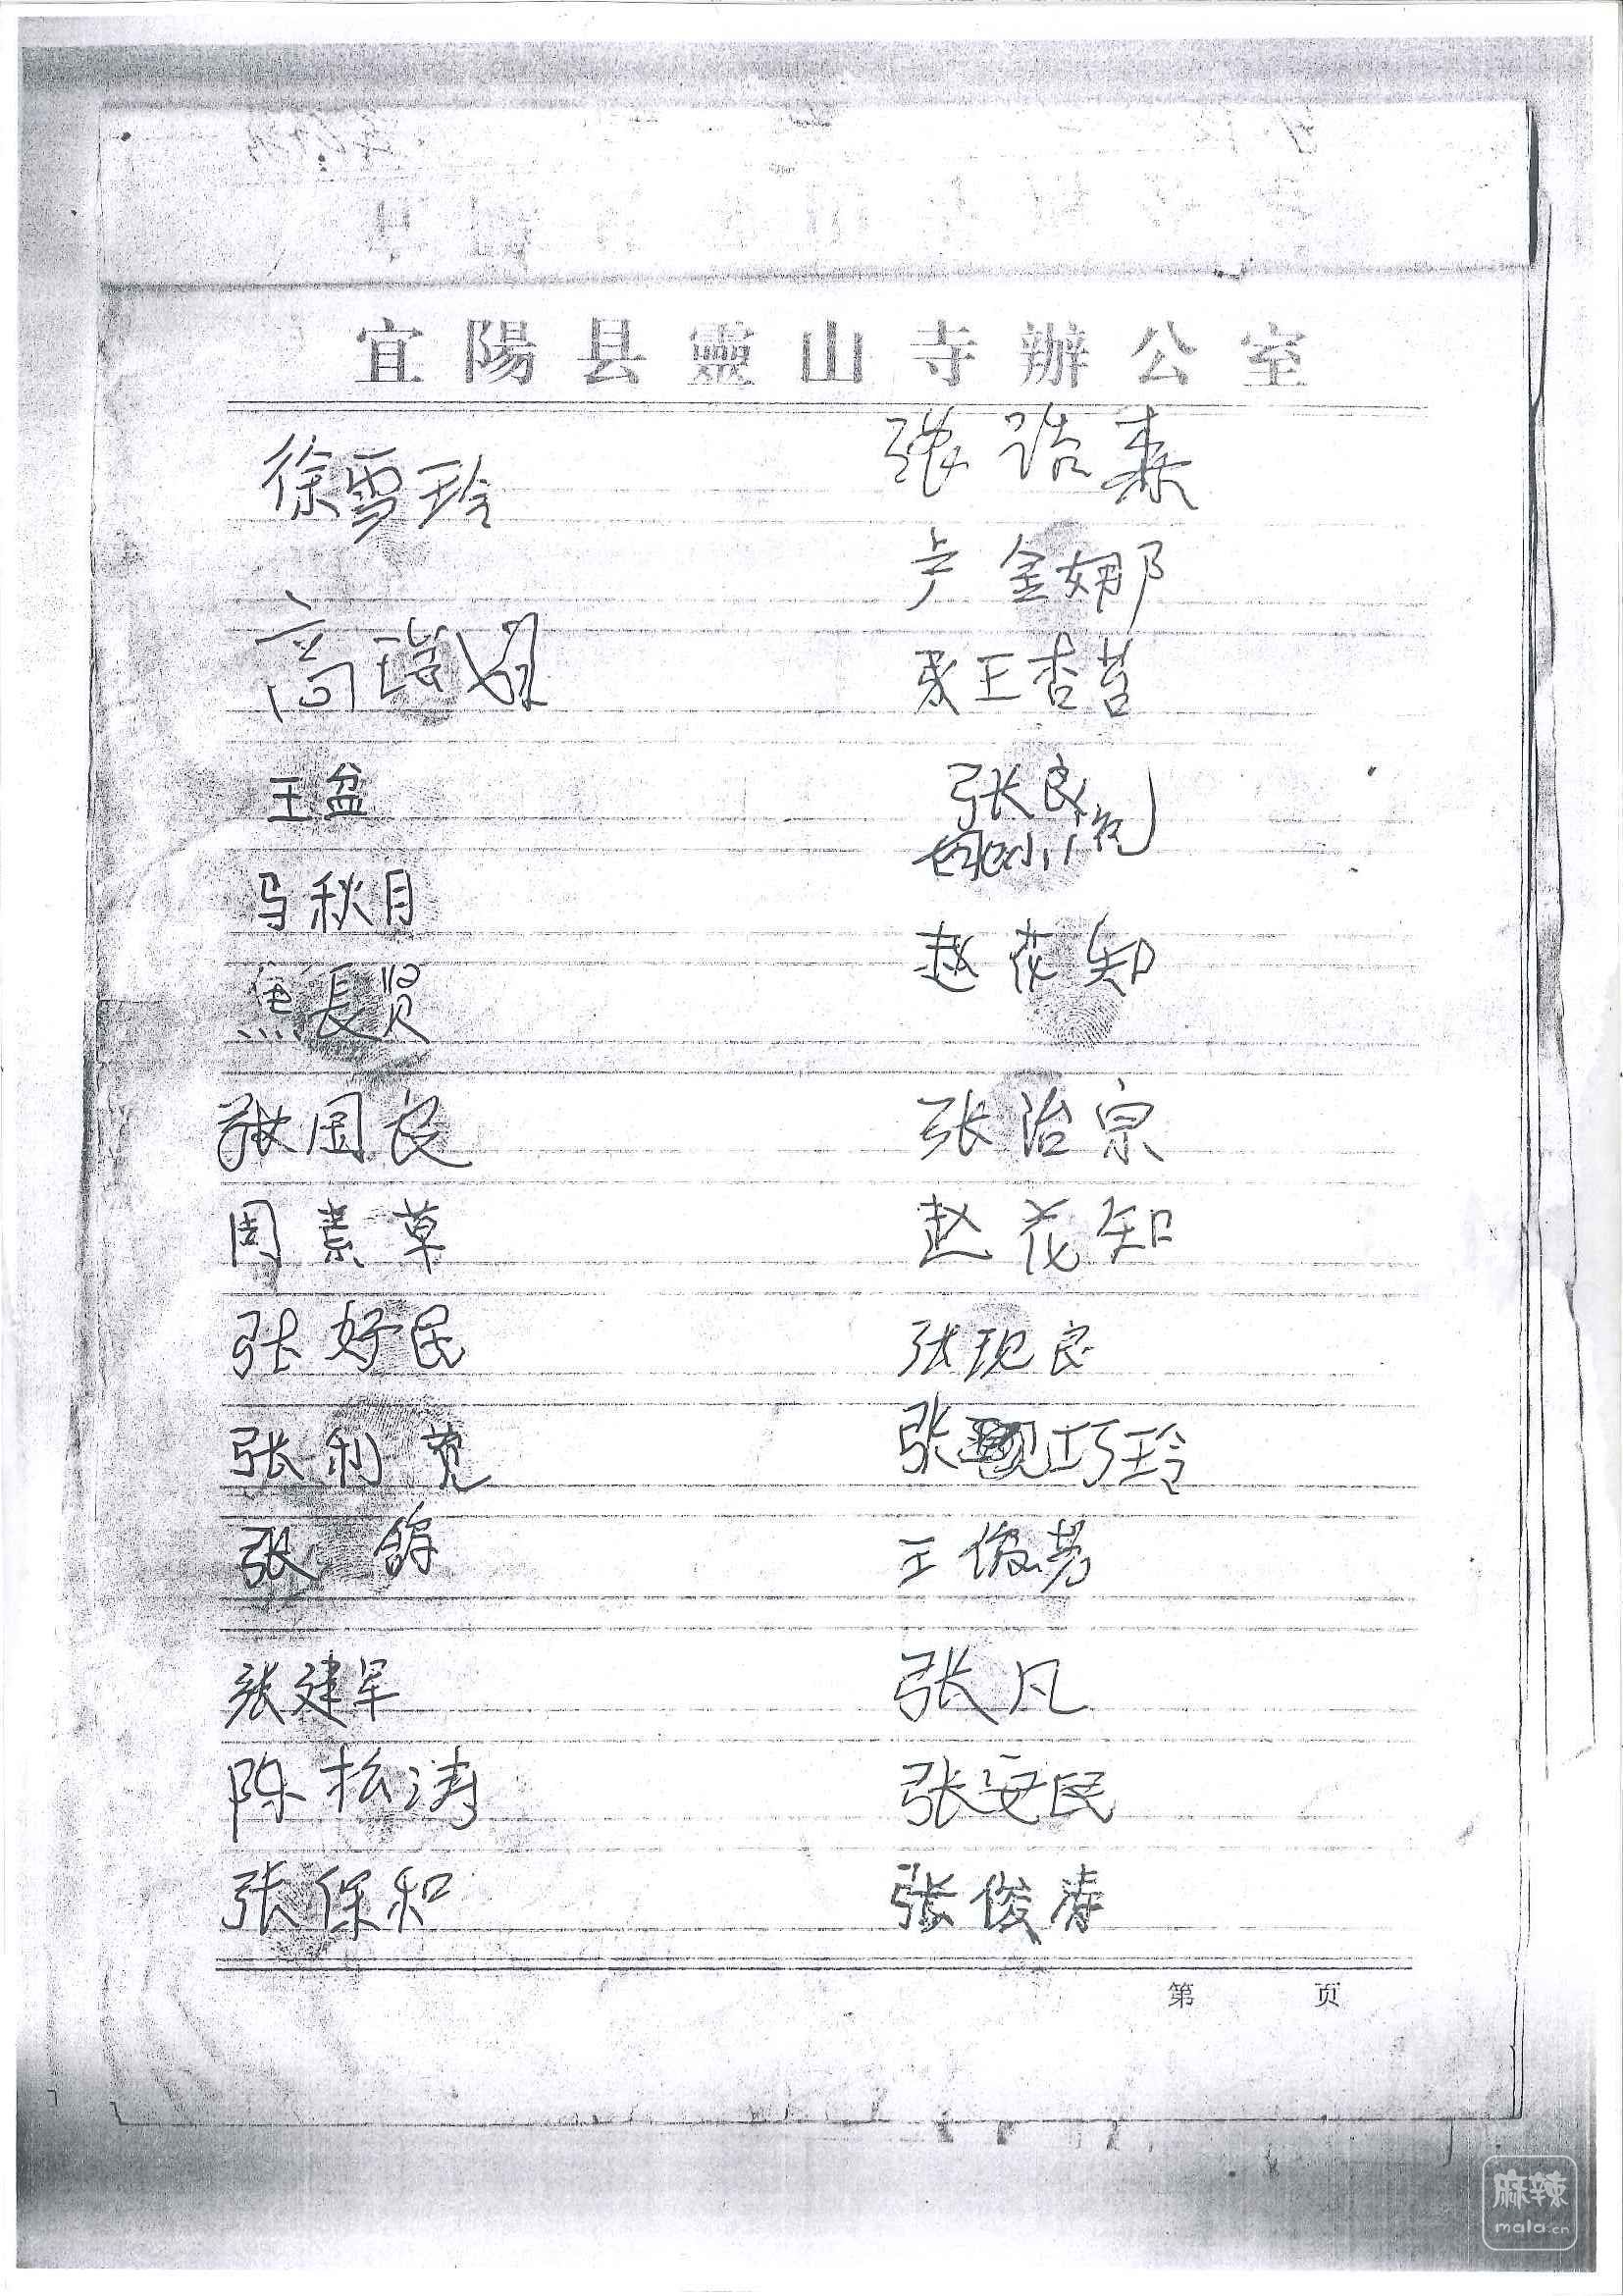 宜陽县靈山寺辦公室
徐雪玲
高瑞
王盆
马秋月
焦長贤
张国良
周素草
张好民
张利宽
张 鸽
张建军
陈松涛
张保和
张浩森
卢金娜
王杏苔
张良
姚小花
赵花知
张治宗
赵花知
张现良
张巧玲
王俊芳
张凡
张安民
张俊涛
第 页
麻辣
mala.cn